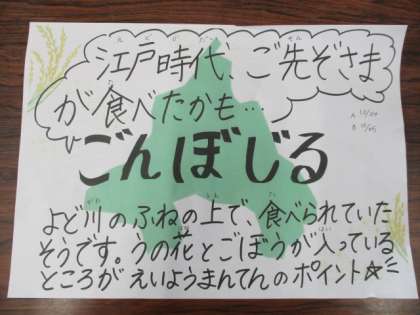 江戸時代、ご先ぞさま
が食べたかも…
ごんぼじる
よど川のふねの上で、食べられていた
そうです。うの花とごぼうが入っている
ところがえいようまんてんのポイント☆